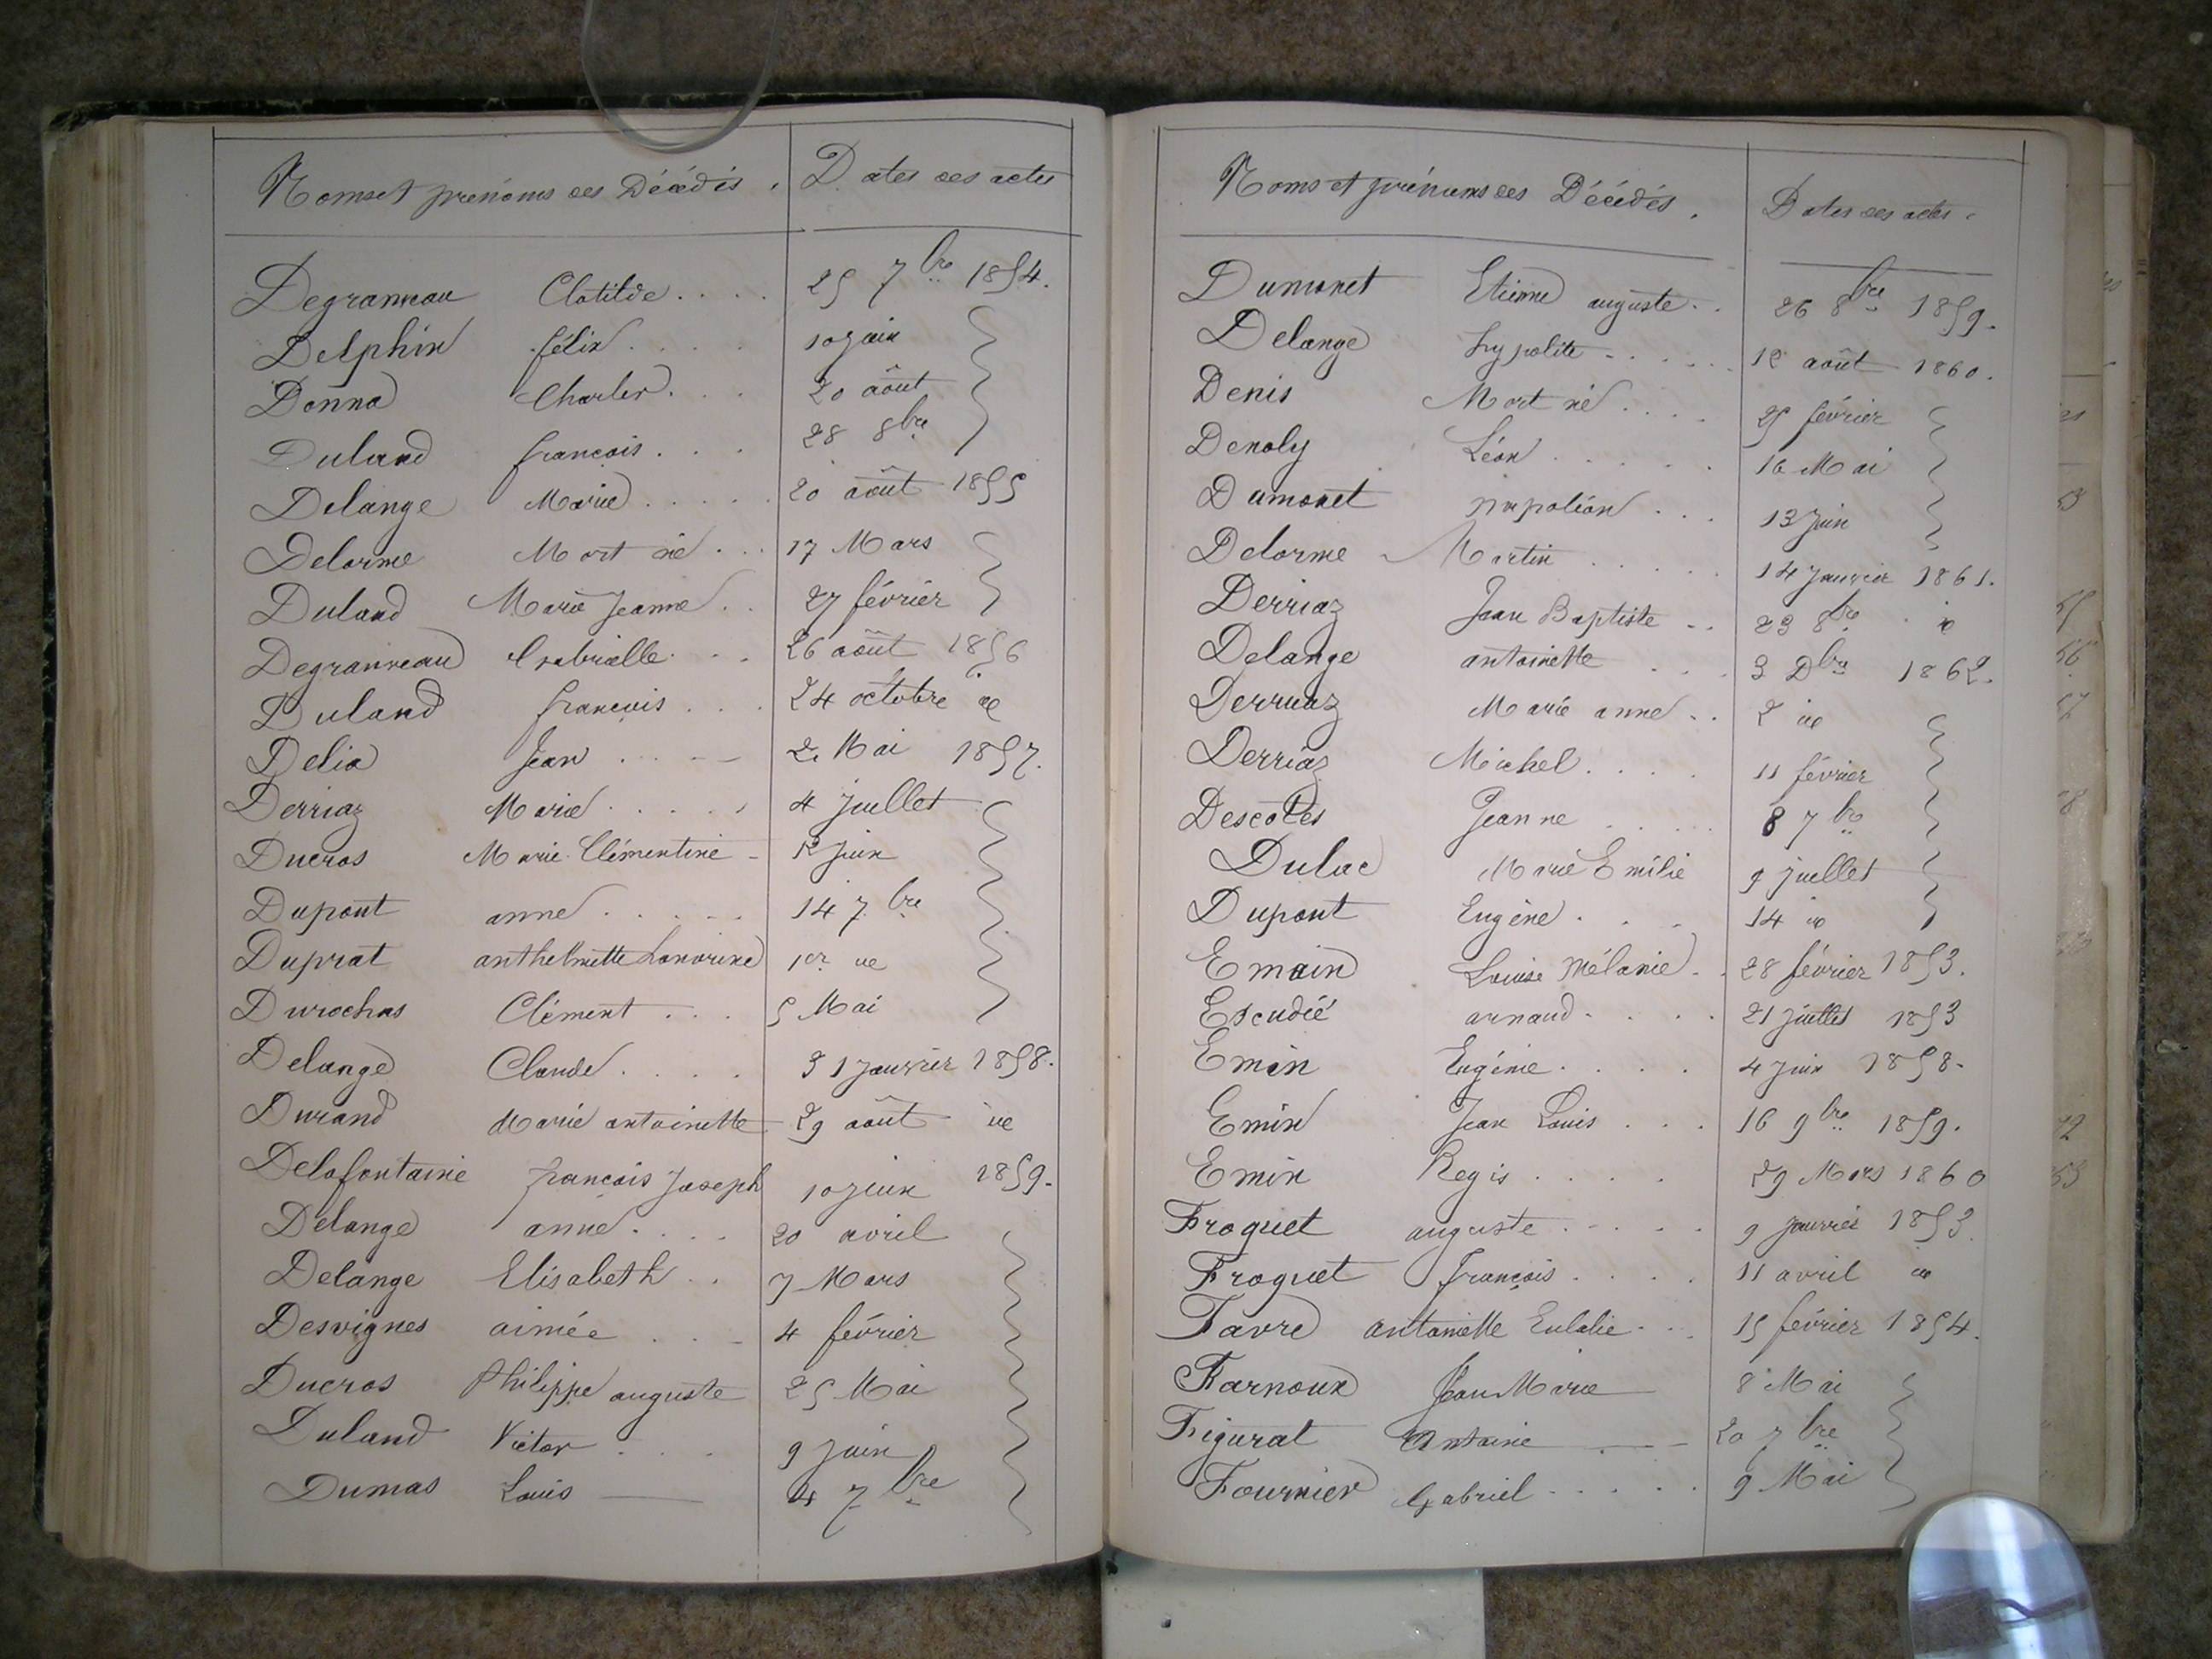 Noms et prénoms des Décédés. Dates des actes
Degranneau Clotilde.... 25 7bre 1854.
Delphin félix.... 10 juin
Donna Charles... 20 août
Duland françois... 28 8bre
Delange Marie..... 20 août 1855
Delorme Mort né... 17 Mars
Duland Marie Jeanne.. 27 février
Degranneau Gabrielle... 26 août 1856.
Duland françois... 24 octobre id
Delia Jean.... 2. Mai 1857.
Derriaz Marie..... 4 juillet
Ducros Marie Clémentine - 12 juin
Dupont anne..... 14 7bre
Duprat anthelmette 1er id
Durochas Clément... 5 Mai
Delange Claude.... 31 Janvier 1858.
Durand Marie antoinette 29 août id
Delafontaine françois Joseph 10 juin 1859.
Delange anne.... 20 avril
Delange Elisabeth.. 7 Mars
Desvignes aimée... 4 février
Ducros Philippe auguste 25 Mai
Duland Victor... 9 Juin
Dumas Louis — 4 7bre
Noms et prénoms des Décédés. Dates des actes.
Dumonet Etienne auguste.. 26 8bre 1859.
Delange hypolite..... 12 août 1860.
Denis Mort né.... 25 février
Denoly Léon..... 16 Mai
Dumonet napoléon... 13 Juin
Delorme Martin..... 14 Janvier 1861.
Derriaz Jean Baptiste.. 23 8bre id
Delange antoinette... 3 Dbre 1862.
Derriaz Marie anne.. 2 id
Derriaz Michel.... 11 février
Descotes Jeanne.... 8 7bre
Dulac Marie Emilie 9 juillet
Dupont Eugène... 14 id
Emain Louise Mélanie.. 28 février 1853.
Escudié arnaud.... 21 juillet 1853
Emin Eugénie.... 4 Juin 1858.
Emin Jean Louis... 16 9bre 1859.
Emin Regis.... 29 Mars 1860
Froquet auguste..... 9 janvier 1853.
Froquet françois.... 11 avril id
Favre antoinette Eulalie... 15 février 1854.
Farnoux Jean Marie 8 Mai
Figurat Antoine 20 7bre
Fournier Gabriel..... 9 Mai